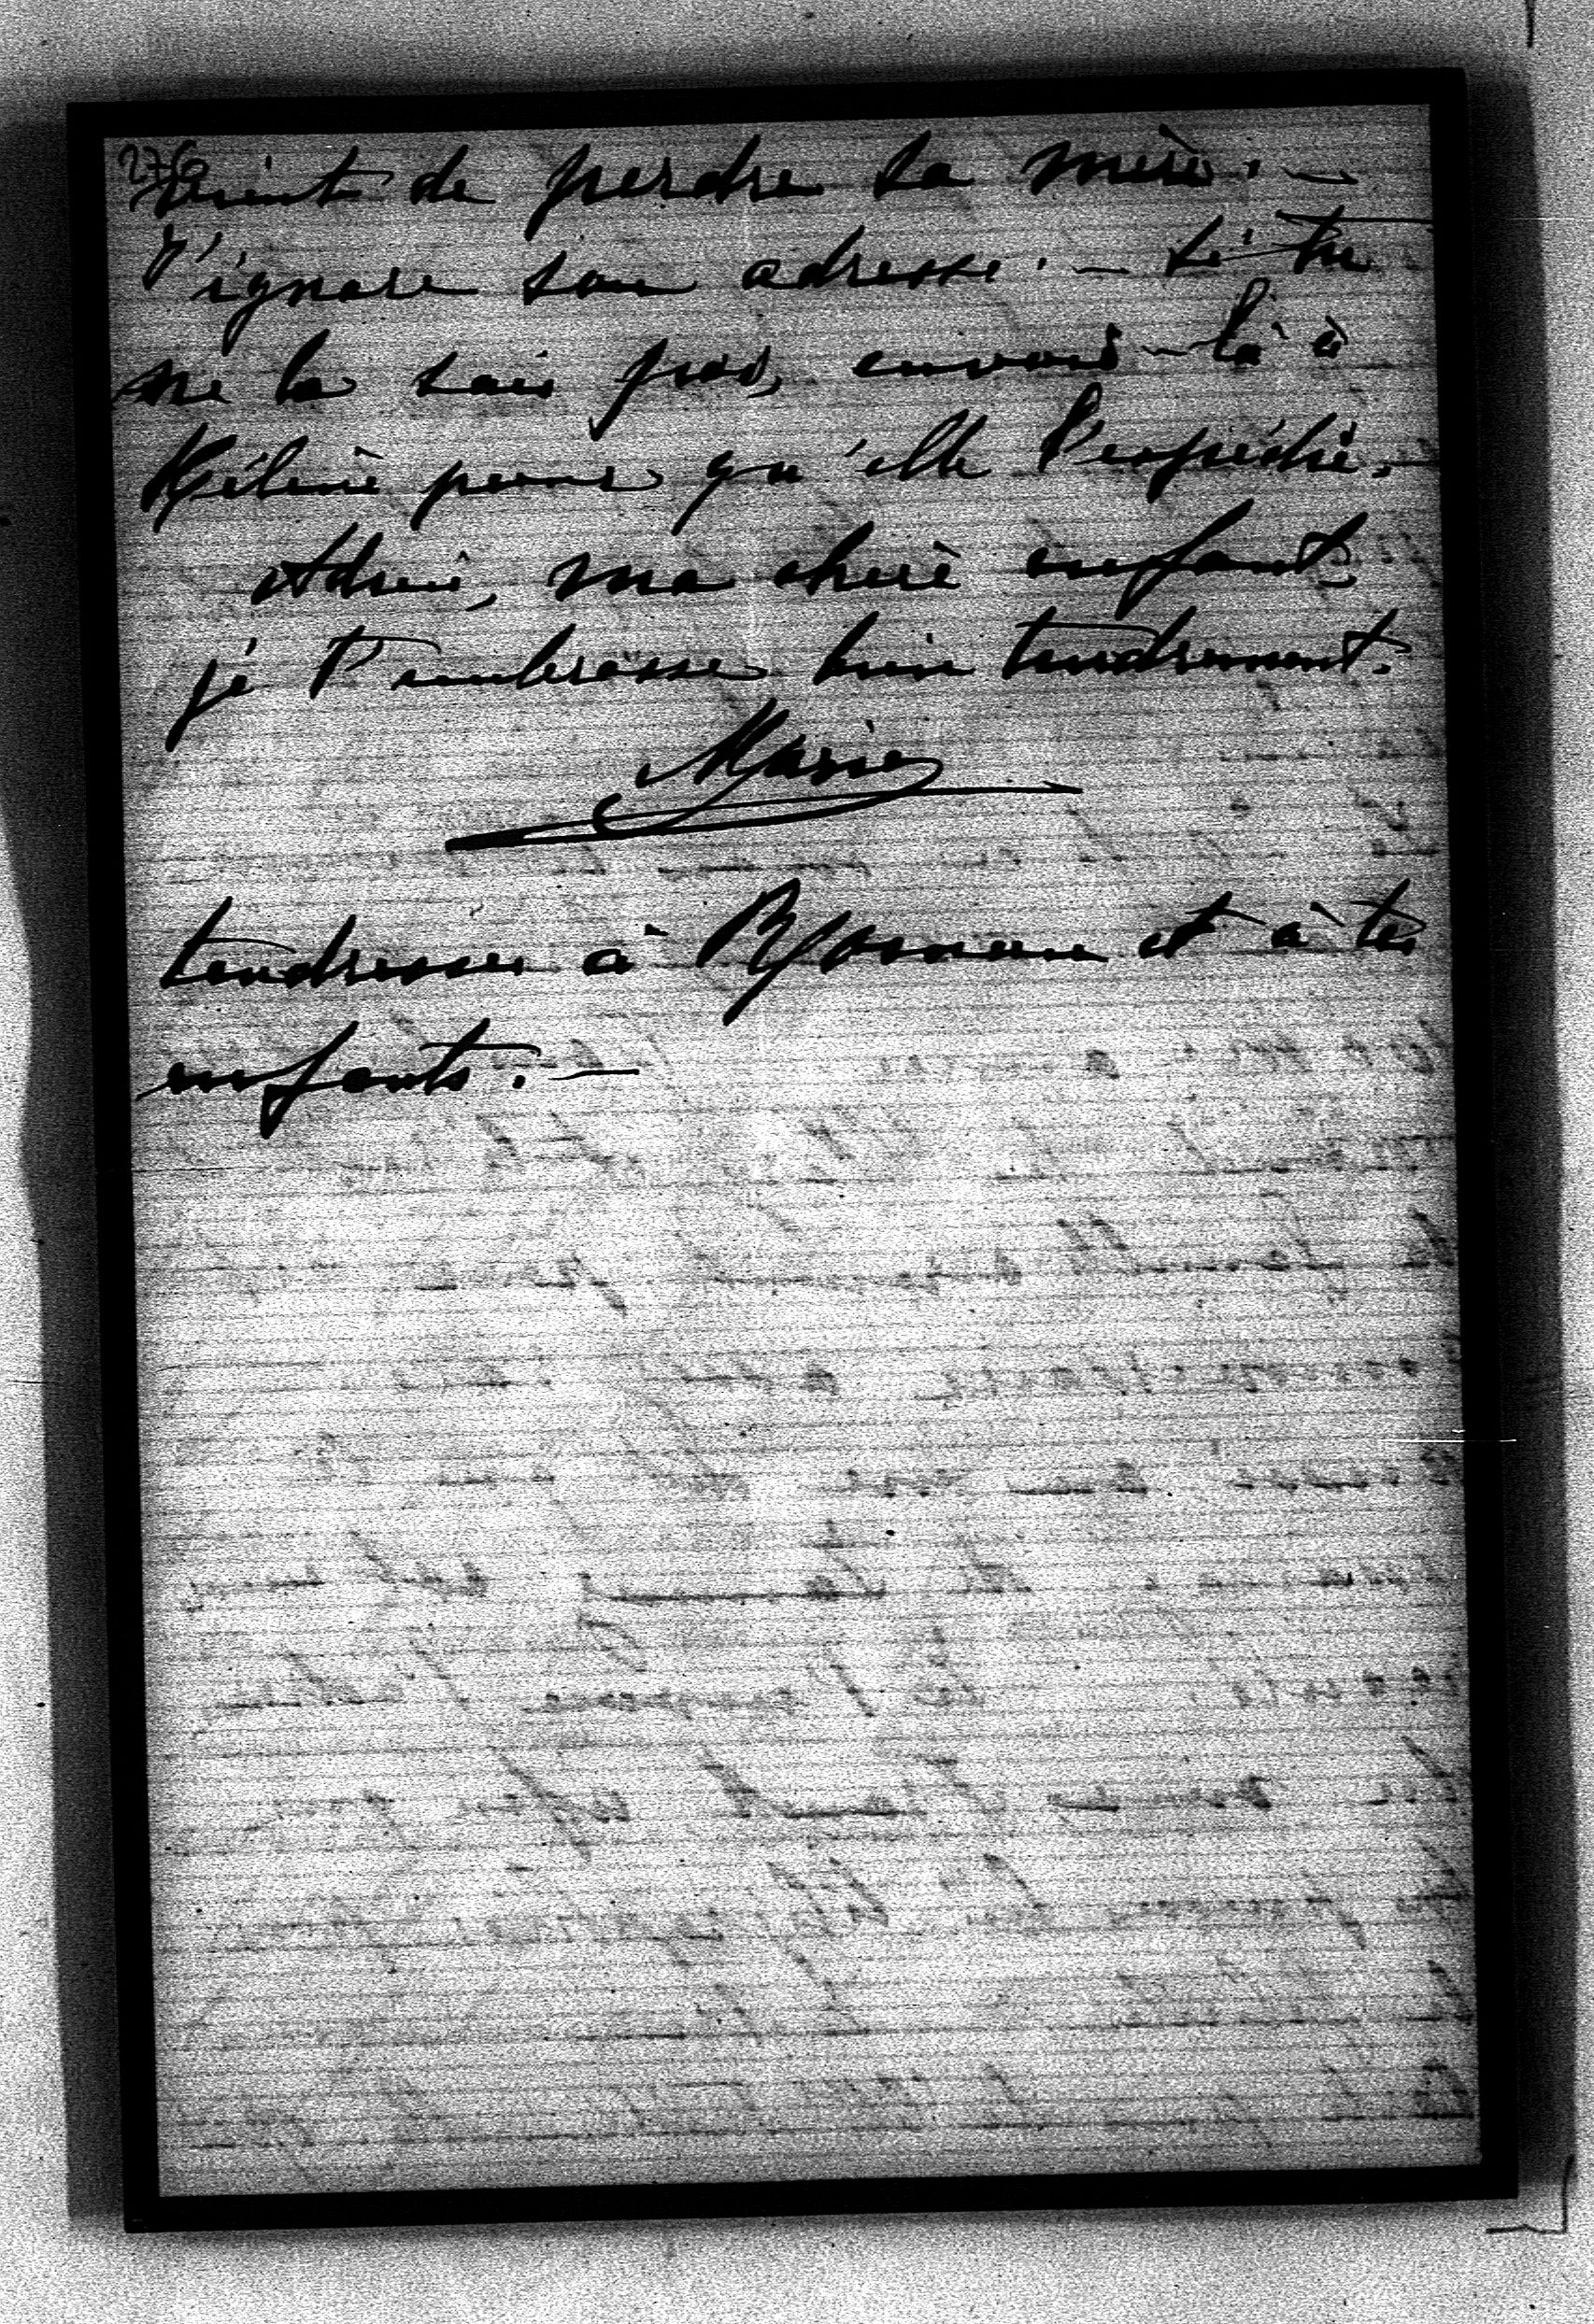 276
vient de perdre sa mère. —
J'ignore son adresse. — Si tu
ne la sais pas, envoie-la à
Hélène pour qu'elle l'expédie. —
Adieu, ma chère enfant,
je t'embrasse bien tendrement.
Marie
tendresses à et à tes
enfants. —